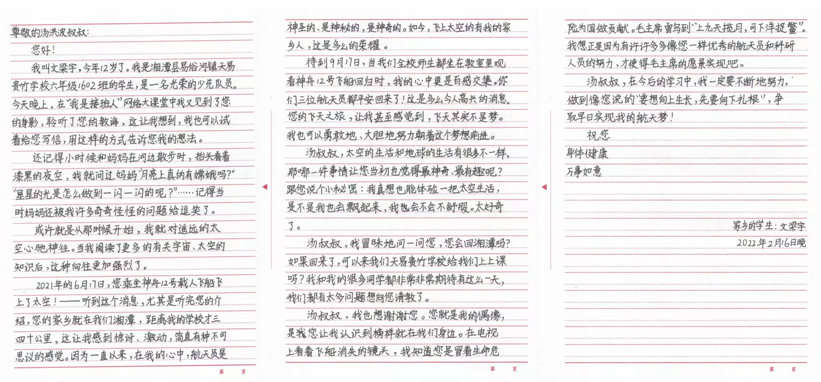 尊敬的汤洪波叔叔:
您好!
我叫文梁宇,今年12岁了。我是湘潭县易俗河镇天易
贵竹学校六年级1602班的学生,是一名光荣的少先队员。
今天晚上,在“我是接班人”网络大课堂中我又见到了您
的身影,聆听了您的教诲。这让我想到,我也可以试
着给您写信,用这样的方式告诉您我的想法。
还记得小时候和妈妈在河边散步时,抬头看着
漆黑的夜空,我就问过妈妈“月亮上真的有嫦娥吗?”
“星星的光是怎么做到一闪一闪的呢?”……记得当
时妈妈还被我许多奇奇怪怪的问题给逗笑了。
或许就是从那时候开始,我就对遥远的太
空心驰神往。当我阅读了更多的有关宇宙、太空的
知识后,这种向往更加强烈了。
2021年的6月17日,您乘坐神舟12号载人飞船飞
上了太空!——听到这个消息,尤其是听完您的介
绍,您的家乡就在我们湘潭,距离我的学校才三
四十公里,这让我感到惊讶、激动,简直有种不可
思议的感觉。因为一直以来,在我的心中,航天员是
神圣的、是神秘的,是神奇的。如今,飞上太空的有我的家
乡人,这是多么的荣耀。
待到9月17日,当我们全校师生都坐在教室里观
看神舟12号飞船回归时,我的心中更是百感交集。你
们三位航天员都平安回来了!这是多么令人高兴的消息。
您的飞天之旅,让我甚至感觉到,飞天其实不是梦。
我也可以勇敢地、大胆地努力朝着这个梦想前进。
汤叔叔,太空的生活和地球的生活有很多不一样,
那哪一件事情让您当初觉得最神奇、最有趣呢?
跟您说个小秘密:我真想也能体验一把太空生活,
是不是我也会飘起来,我也会不会耐烦。太好奇
了。
汤叔叔,我冒昧地问一问您,您会回湘潭吗?
如果回来了,可以来我们天易贵竹学校给我们上上课
吗?我和我的很多同学都非常非常期待有这么一天,
我们都有太多问题想向您请教了。
汤叔叔、我也想谢谢您。您就是我的偶像,
是我您让我认识到榜样就在我们身边。在电视
上看着飞船消失的镜头,我知道您是冒着生命危
险为国做贡献。毛主席曾写到“上九天揽月,可下洋捉鳖”。
我想正是因为有许许多多像您一样优秀的航天员和科研
人员的努力,才使得毛主席的愿景实现吧。
汤叔叔,在今后的学习中,我一定要不断地努力,
做到像您说的“要想向上生长,先要向下扎根”,争
取早日实现我的航天梦!
祝您
身体健康
万事如意
家乡的学生:文梁宇
2022年2月16日晚
第 页
第 页
第 页